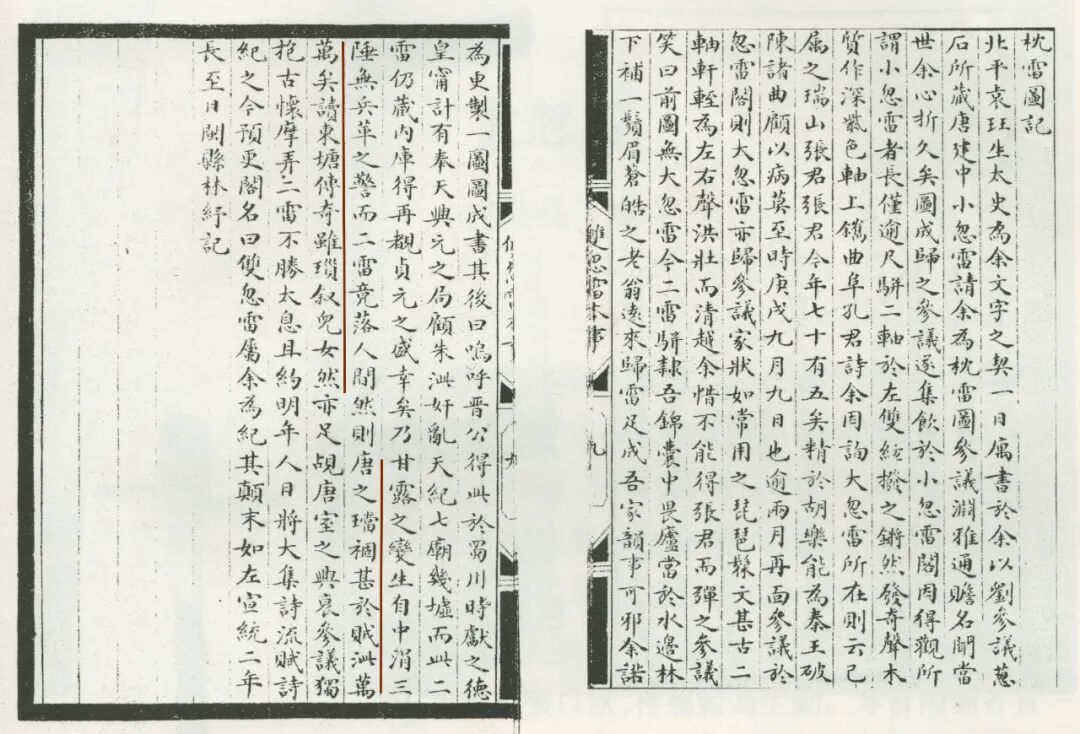 枕雷圖記
北平袁珏生太史為余文字之契一日寓書於余以劉參議蔥
石所蔵唐建中小忽雷請余為枕雷圖參議淵雅通贍名聞當
世余心折久矣圖成歸之參議遂集飲於小忽雷閣因得觀所
謂小忽雷者長僅逾尺駢二軸於左雙絃撥之鏘然發奇聲木
質作深紫色軸上鐫曲阜孔君詩余因詢大忽雷所在則云已
屬之瑞山張君張君今年七十有五矣精於胡樂能為秦王破
陳諸曲顧以病莫至時庚戌九月九日也逾兩月再面參議於
忽雷閣則大忽雷亦歸參議家狀如常用之琵琶髹文甚古二
軸軒輊為左右聲洪壯而清越余惜不能得張君而彈之參議
笑曰前圖無大忽雷今二雷駢隸吾錦囊中畏廬當於水邊林
下補一鬚眉蒼皓之老翁遠來歸雷足成吾家韻事可邪余諾
雙忽雷本事
九
為更製一圖圖成書其後曰嗚呼晉公得此於蜀川時獻之德
皇甯計有奉天興元之局顧朱泚奸亂天紀七廟幾墟而此二
雷仍蔵內庫得再覩貞元之盛幸矣乃甘露之變生自中涓三
陲無兵革之警而二雷竟落人間然則唐之璫禍甚於賊泚萬
萬矣讀東塘傳奇雖瑣叙兒女然亦足覘唐室之興衰參議獨
抱古懷摩弄二雷不勝太息且約明年人日將大集詩流賦詩
紀之今預更閣名曰雙忽雷屬余為紀其顛末如左宣統二年
長至日閩縣林紓記